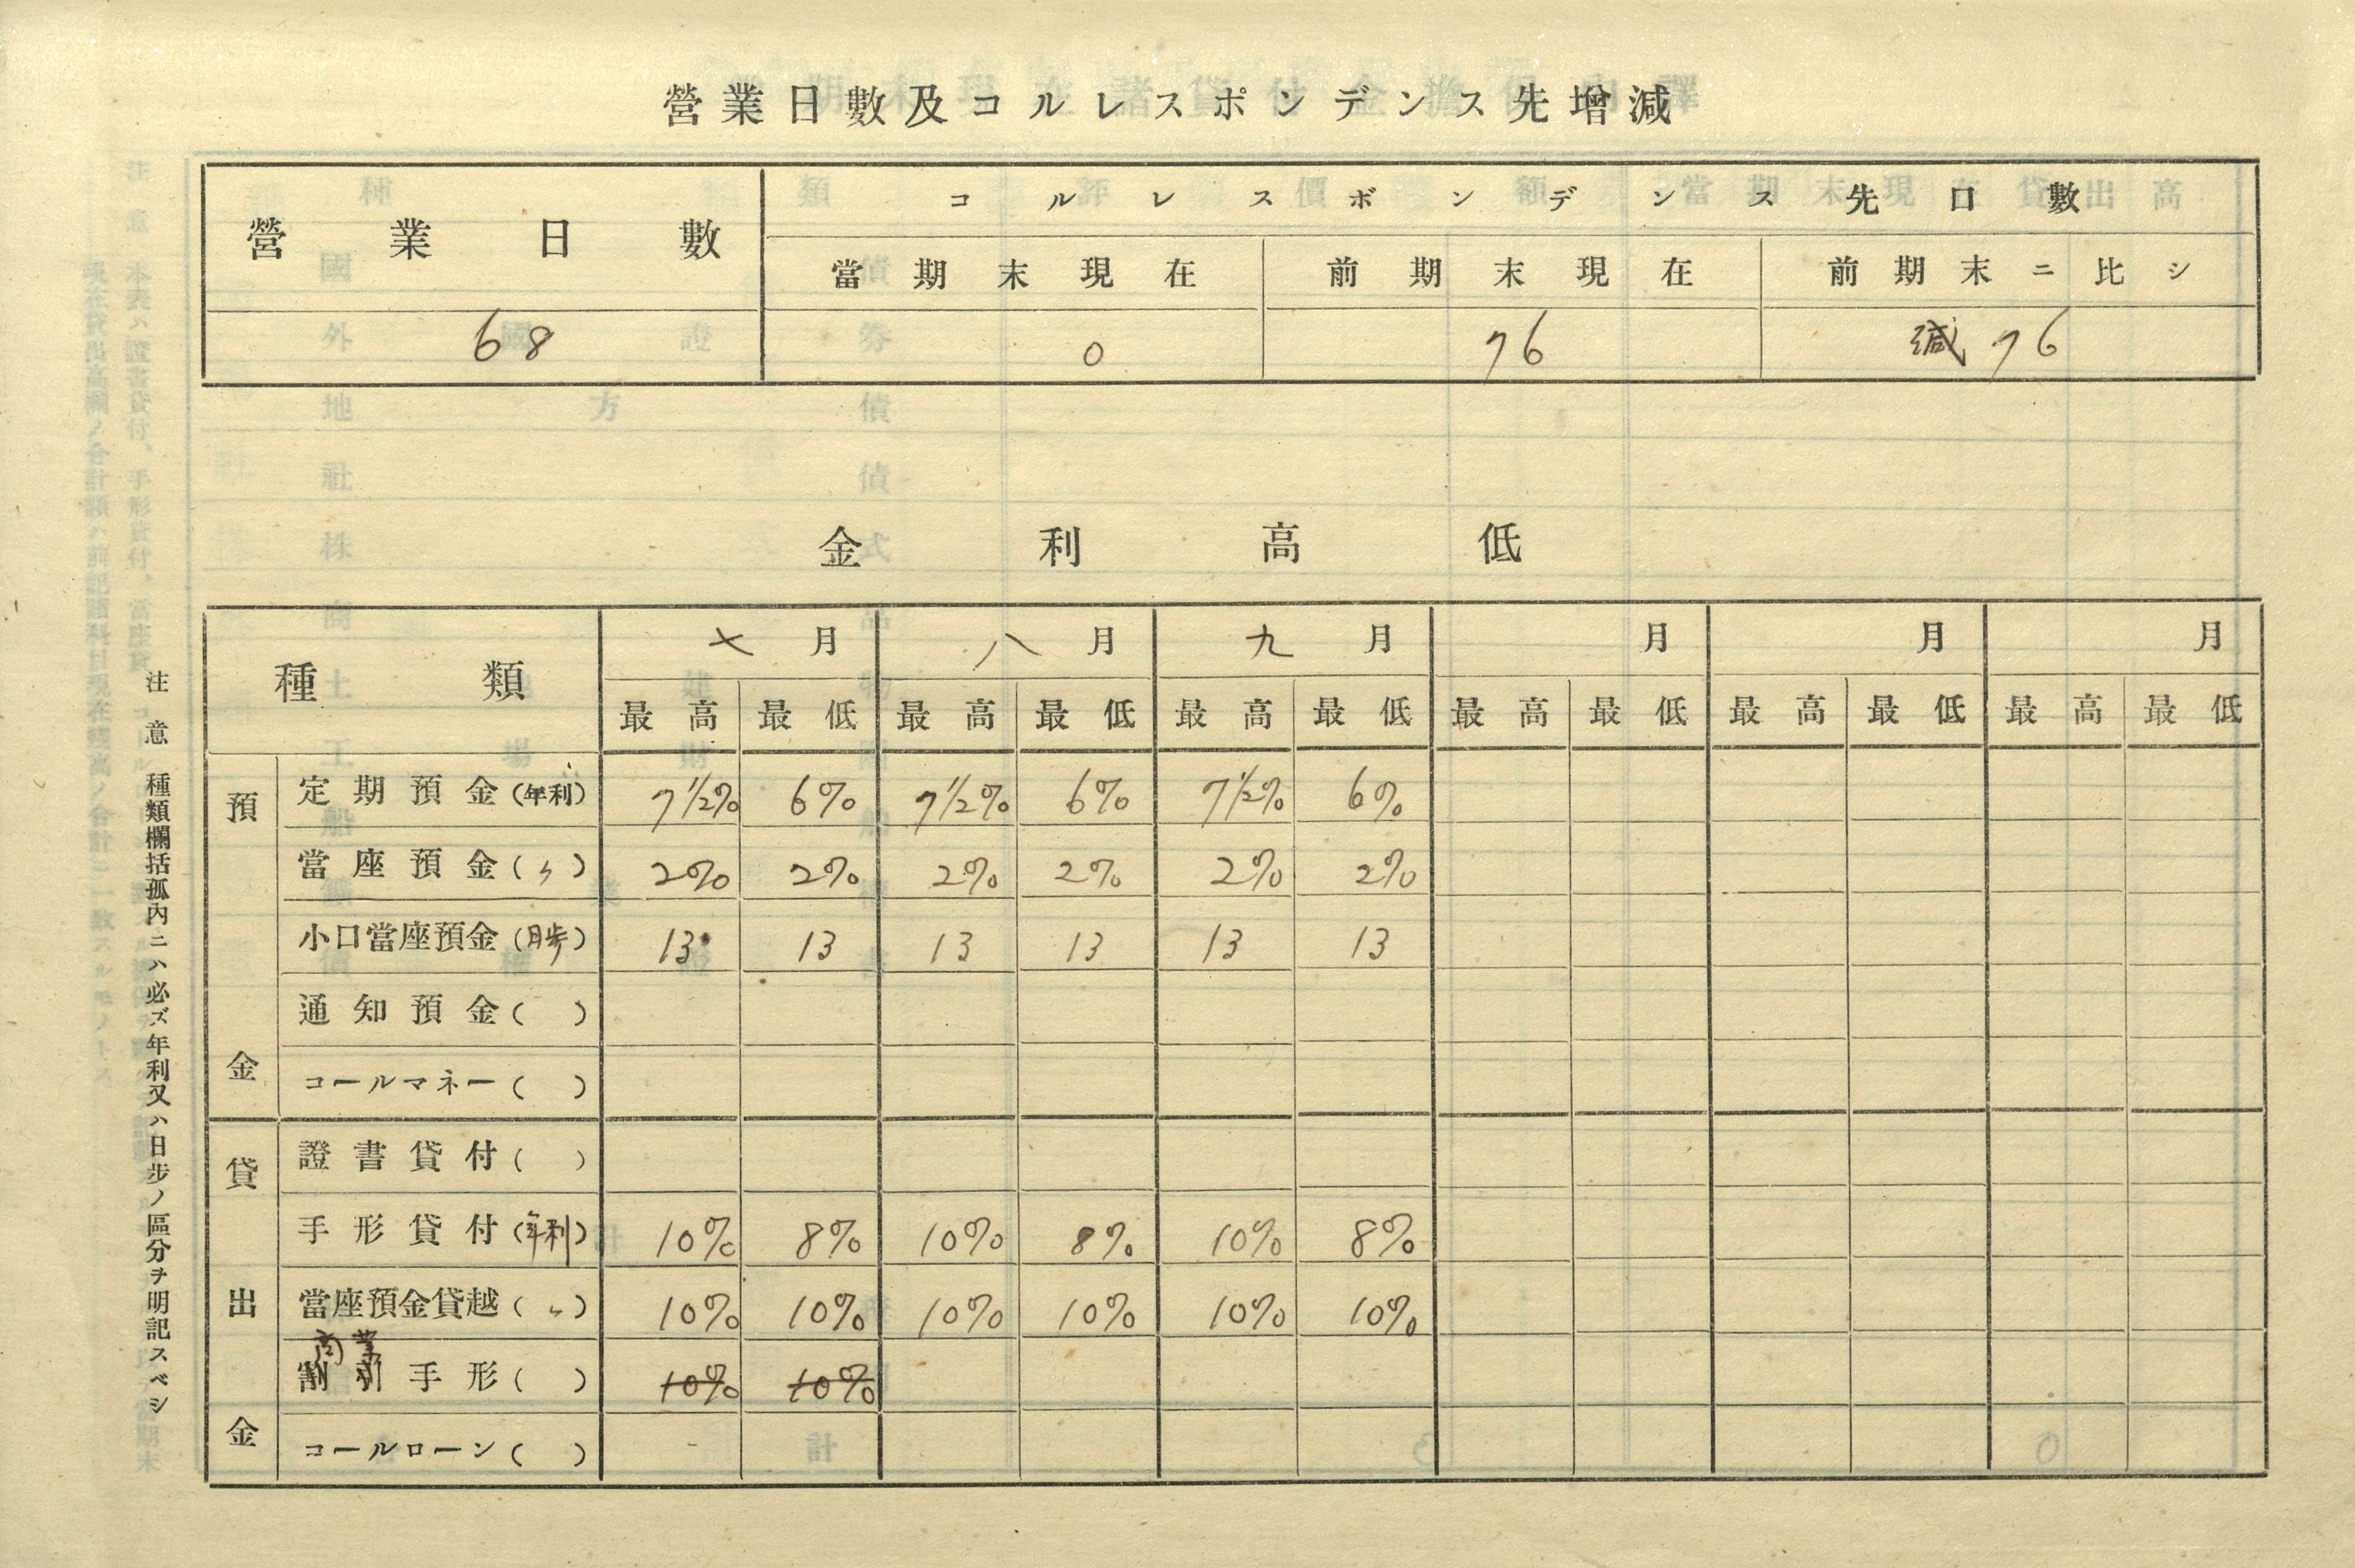 營業日數及コルレスポンデンス先增減
營業日數 コルレスポンデンス先口數
當期末現在 前期末現在 前期末ニ比シ
68 0 76 減 76
金利高低
種類 七月 八月 九月 月 月 月
最高 最低 最高 最低 最高 最低 最高 最低 最高 最低 最高 最低
預金
定期預金(年利) 7 1/2% 6% 7 1/2% 6% 7 1/2% 6%
當座預金(〃) 2% 2% 2% 2% 2% 2%
小口當座預金(日歩) 13 13 13 13 13 13
通知預金( )
コールマネー( )
貸出金
證書貸付( )
手形貸付(年利) 10% 8% 10% 8% 10% 8%
當座預金貸越(〃) 10% 10% 10% 10% 10% 10%
商業
割引手形( ) 10% 10%
コールローン( )
注意 種類欄括孤內ニハ必ズ年利又ハ日步ノ區分ヲ明記スベシ